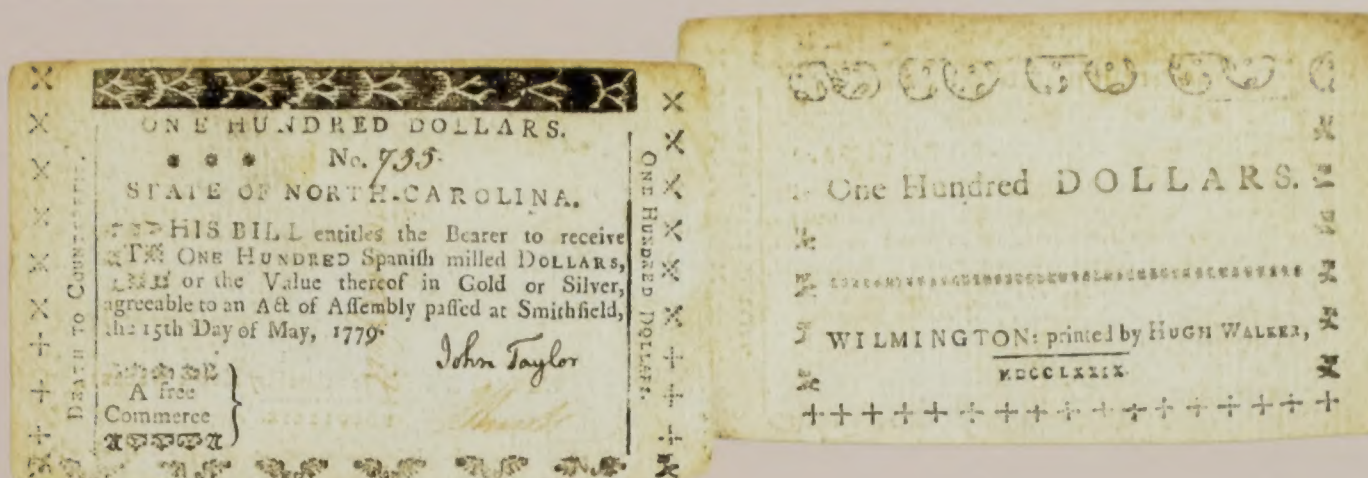 ONE HUNDRED DOLLARS.
No. 735
STATE OF NORTH-CAROLINA.
THIS BILL entitles the Bearer to receive
ONE HUNDRED Spaniſh milled DOLLARS,
or the Value thereof in Gold or Silver,
agreeable to an Act of Aſſembly paſſed at Smithfield,
the 15th Day of May, 1779.
John Taylor
A free
Commerce
DEATH TO COUNTERFEIT.
ONE HUNDRED DOLLARS.
One Hundred DOLLARS.
WILMINGTON: printed by HUGH WALKER,
MDCCLXXIX.